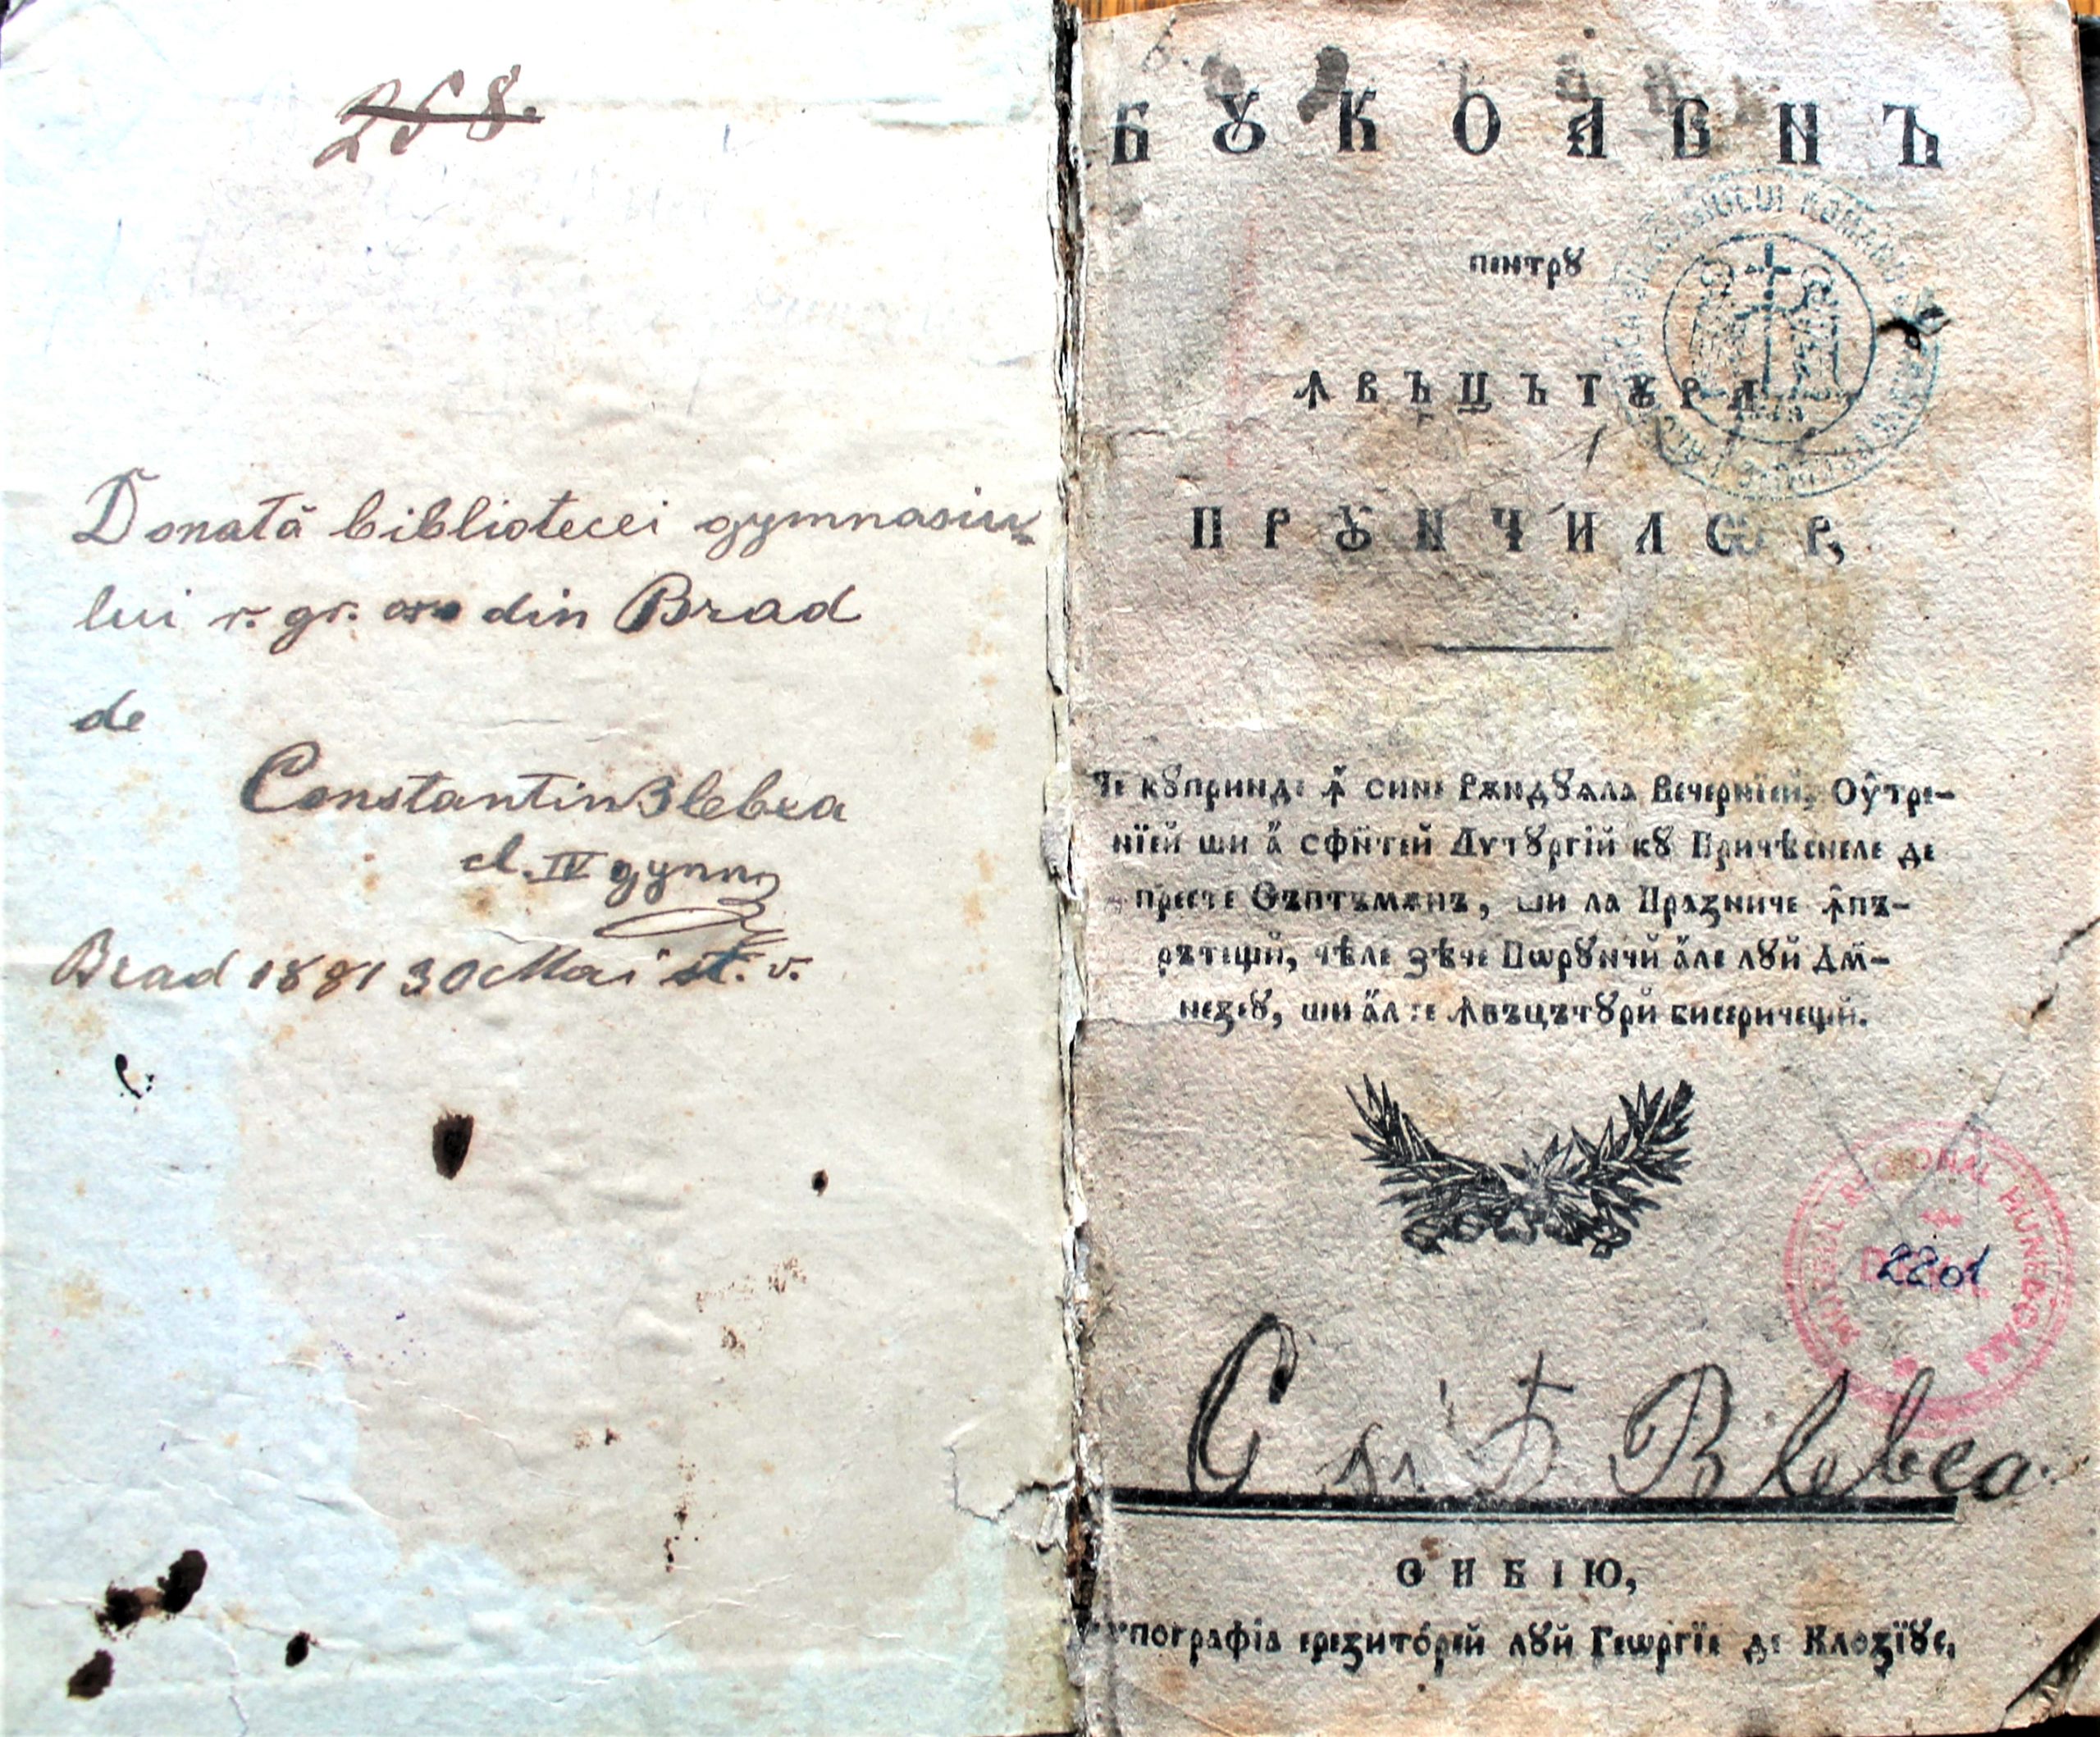 258.
Donată bibliotecei gymnasiu-
lui r. gr. or. din Brad
de
Constantin Blebea
cl. IV gymn
Brad 1891 30 Mai st. v.
БꙊКОАВНЪ
пентрꙋ
ꙞВЪЦЪТꙊРА
ПРꙊНЧИЛѠР,
Че кꙋпринде ꙟ сине Рѫндꙋѧла Вечернїей, Оу҆тре-
нїей ши а҆ сфи́нтей Лѵтꙋргїй кꙋ Причѣснеле де
престе Съптъмѫнъ, ши ла Празниче ꙟпъ-
рътещй, чѣле зѣче Пѡрꙋнчй а҆ле лꙋй Дм̃-
незеꙋ, ши а҆лте ꙟвъцътꙋрй бисеричещй.
MUZEUL REGIONAL HUNEDOARA
2201
Blebea
СИБІЮ,
Тѵпографїа ерезито́рей лꙋй Геѡргїе де Клозїꙋс.